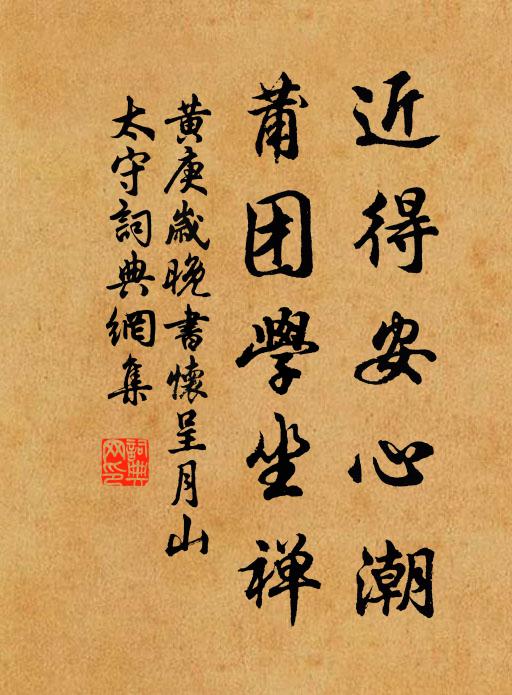 近得安心潮
莆团學坐禅
黄庚歲晚書懷呈月山
太守詞典網集
詞典网印